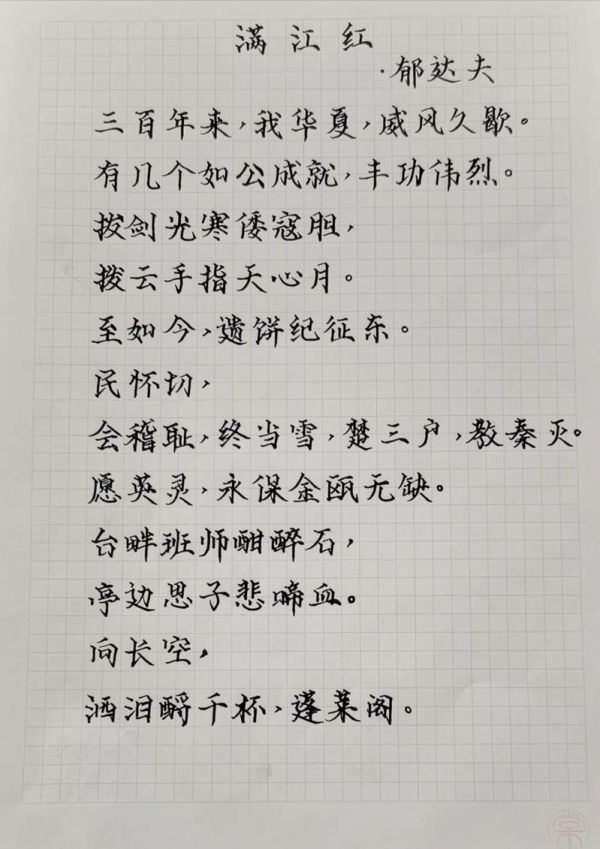 满江红
·郁达夫
三百年来,我华夏,威风久歇。
有几个如公成就,丰功伟烈。
拔剑光寒倭寇胆,
拨云手指天心月。
至如今,遗饼纪征东。
民怀切,
会稽耻,终当雪,楚三户,教秦灭。
愿英灵,永保金瓯无缺。
台畔班师酣醉石,
亭边思子悲啼血。
向长空,
洒泪酹千杯,蓬莱阁。